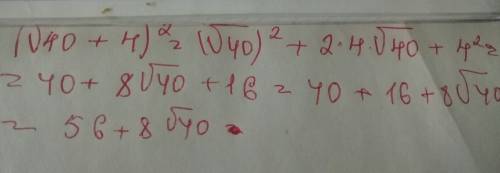 (√40 + 4)² = (√40)² + 2·4·√40 + 4² =
= 40 + 8√40 + 16 = 40 + 16 + 8√40
= 56 + 8√40